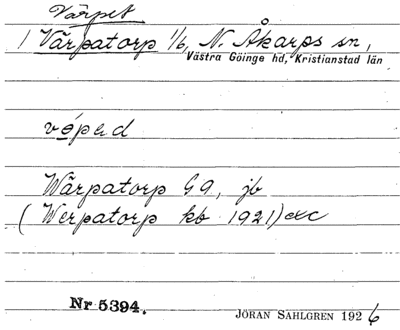 Värpet
1 Värpatorp 1/6, N. Åkarps sn,
Västra Göinge hd, Kristianstad län
Wärpatorp G9, jb
(Werpatorp kb 1921) etc
Nr 5394.
JÖRAN SAHLGREN 1926